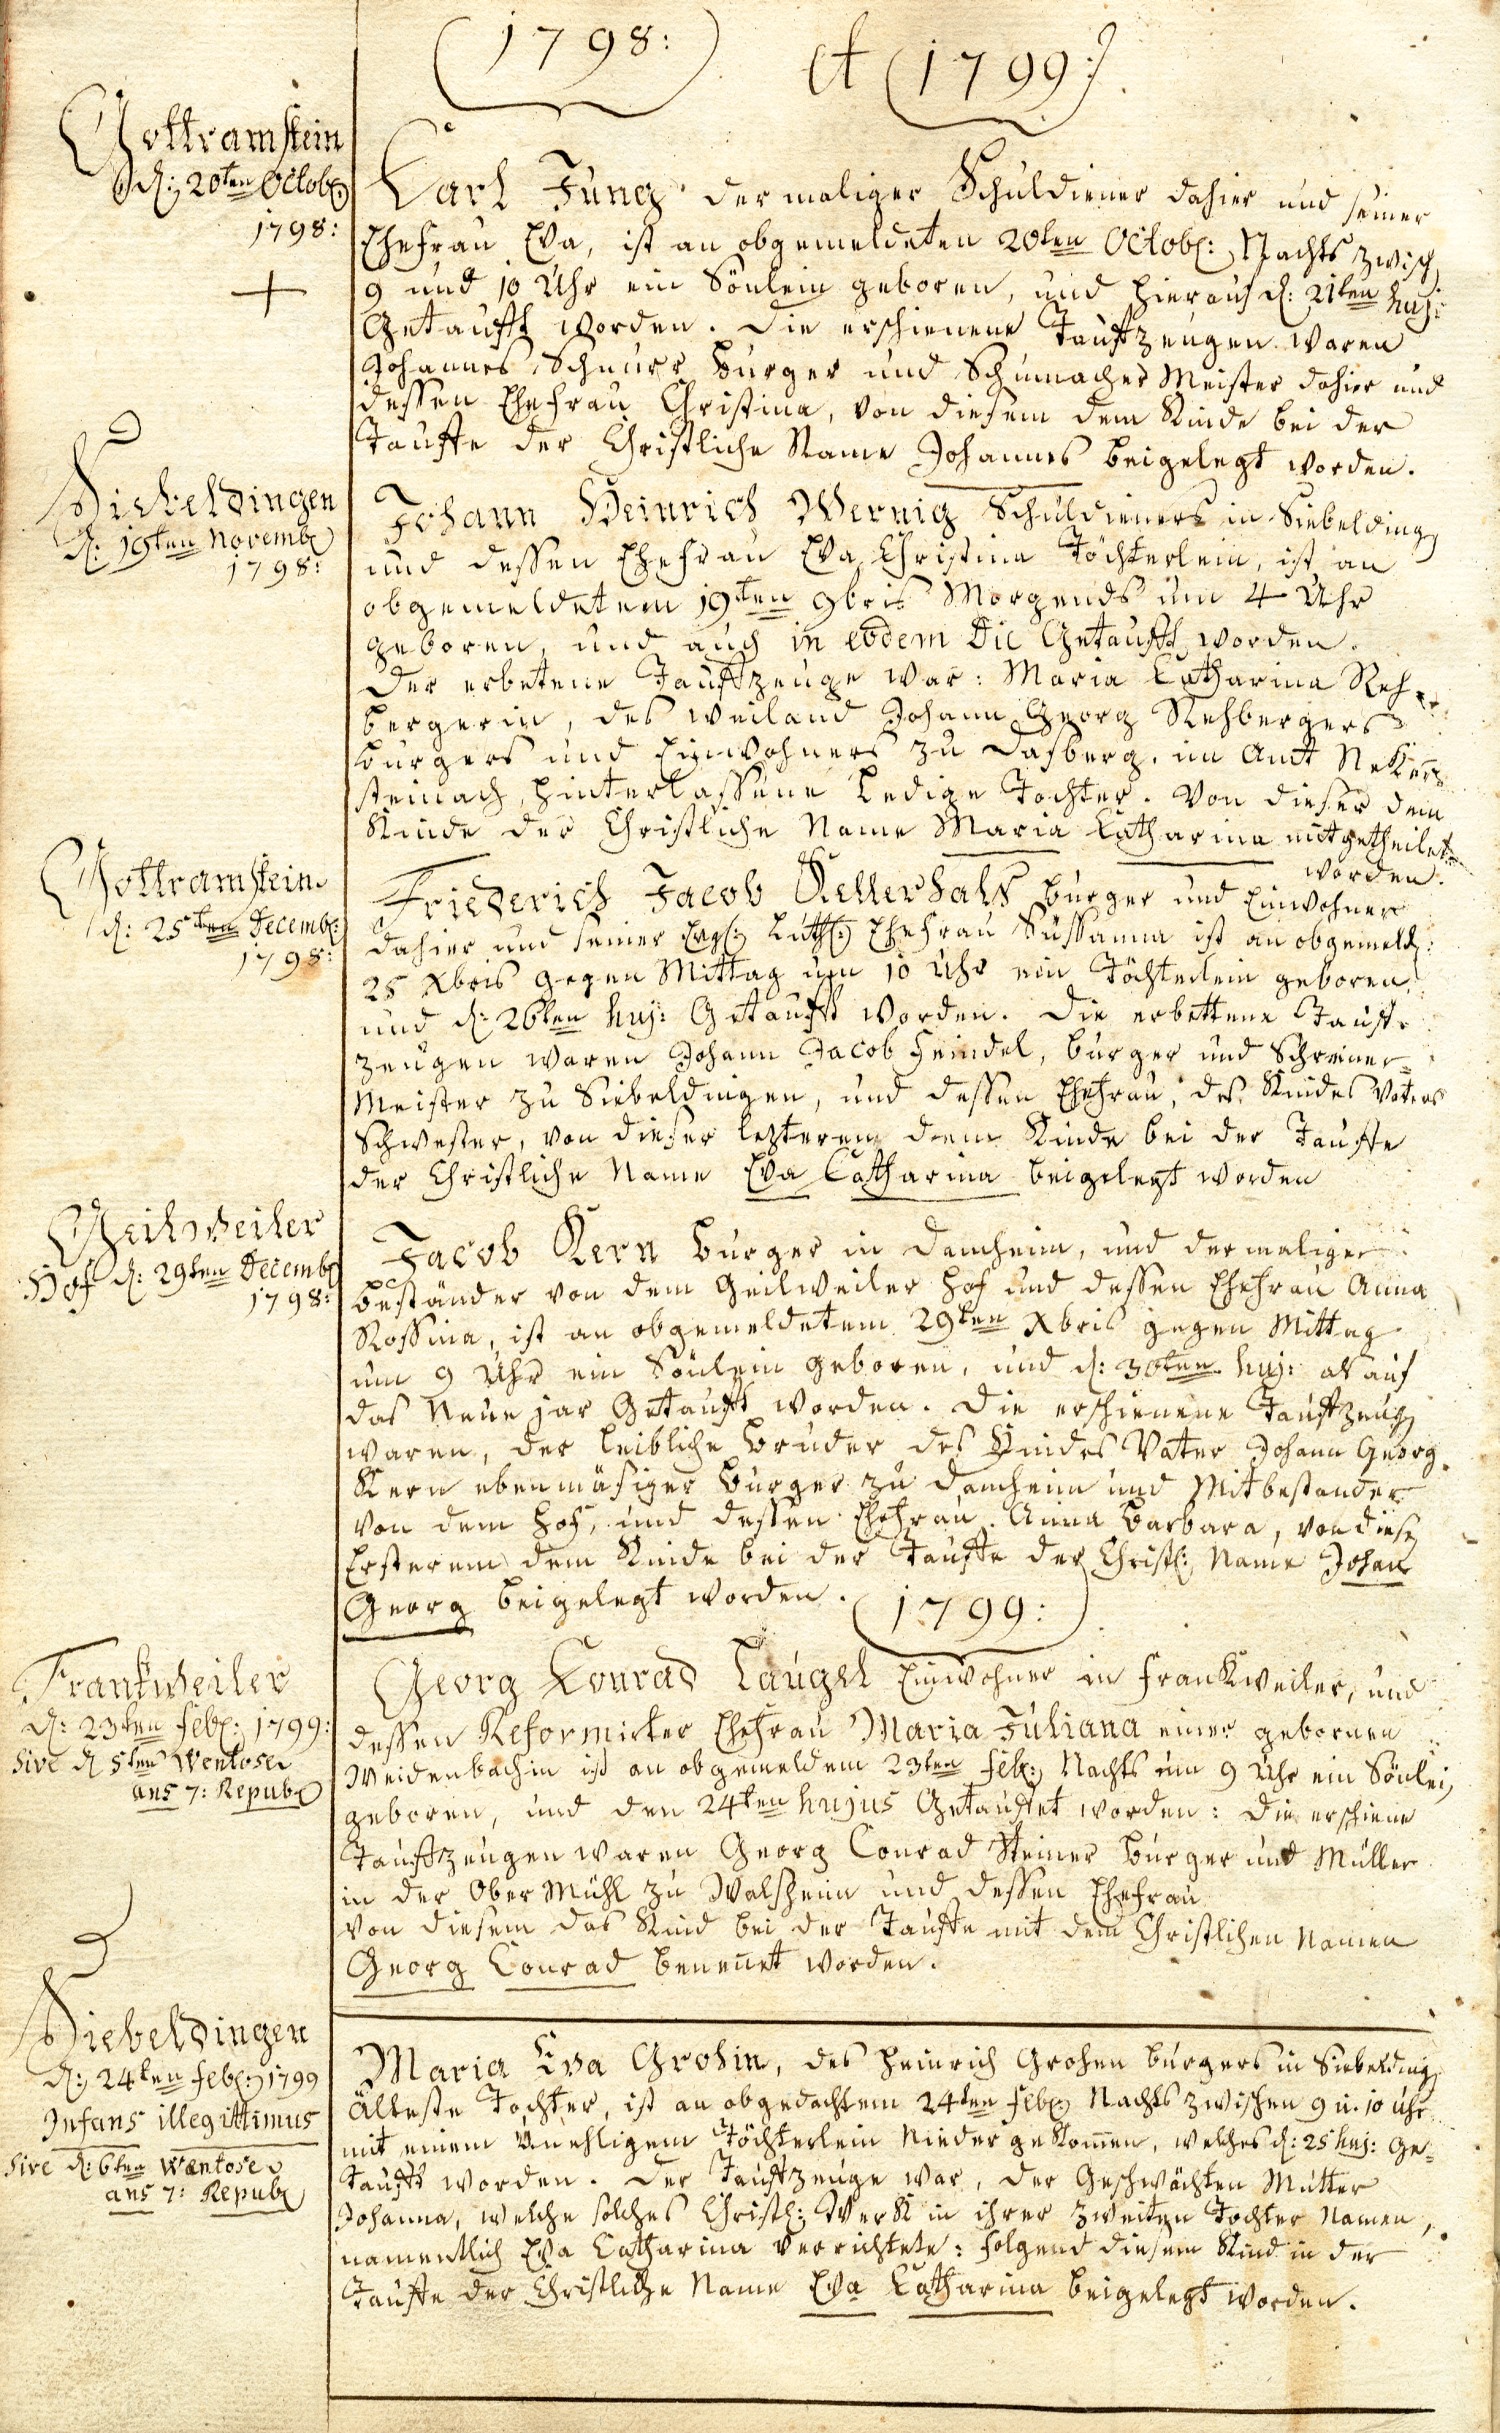 (1798:) et (1799:)
Gottramstein
d: 20ten Octob:
1798:
Carl Jung dermaliger Schuldiener dahier und seiner
Ehefrau Eva, ist an obgemeldeten 20ten Octob: Nachts zwisch
9 und 10 Uhr ein Sönlein geboren, und hierauf d: 21ten huj:
Getaufft worden. Die erschienene Tauffzeugen waren
Johannes Schnurr burger und Schumacher Meister dahier und
dessen Ehefrau Christina, von diesem dem Kinde bei der
Tauffe der Christliche Name Johannes beigelegt worden.
Siebeldingen
d: 19ten Novemb
1798:
Johann Heinrich Wernig Schuldieners in Siebelding
und dessen Ehefrau Eva Christina Töchterlein, ist an
obgemeldetem 19ten 9bris Morgends um 4 Uhr
geboren, und auch in eodem Die Getaufft worden.
Der erbetene Tauffzeuge war: Maria Catharina Reh-
bergerin, des weiland Johann Georg Rehbergers
burgers und Einwohners zu Dasberg, im Amt Neker-
steinach, hinterlassene Ledige Tochter. Von dieser dem
Kinde der Christliche Name Maria Catharina mitgetheilet
worden.
Gottramstein
d: 25ten Decemb:
1798:
Friederich Jacob Kellerhals burger und Einwohner
dahier und seiner Evgl: Luth: Ehefrau Sussanna ist an obgemeld:
25 Xbris gegen Mittag um 10 Uhr ein Töchterlein geboren,
und d: 26ten huj: Getaufft worden. Die erbettene Tauff-
zeugen waren Johann Jacob Heindel, burger und Schreiner-
Meister zu Siebeldingen, und dessen Ehefrau, des Kindes Vaters
Schwester, von dieser lezteren dem Kinde bei der Tauffe
der Christliche Name Eva Catharina beigelegt worden
Geilweiler
Hof d: 29ten Decemb
1798:
Jacob Kern burger in Damheim, und dermaliger
beständer von dem Geilweiler Hof und dessen Ehefrau Anna
Rossina, ist an obgemeldetem 29ten Xbris gegen Mittag
um 9 Uhr ein Sönlein geboren, und d: 30ten huj: als auf
das Neue jar Getaufft worden. Die erschienene Tauffzeug
waren, der leibliche bruder des Kindes Vater Johann Georg
Kern ebenmäsiger burger zu Damheim und Mitbestander
von dem Hof, und dessen Ehefrau Anna Barbara, von diese
Ersterem dem Kinde bei der Tauffe der Christl: Name Johan
Georg beigelegt worden.
(1799:)
Frankweiler
d: 23ten feb: 1799:
sive d 5ten Wentose
ans 7: Repub
Georg Conrad Laugel Einwohner in Frankweiler, und
dessen Reformirter Ehefrau Maria Juliana einer gebornen
Weidenbachin ist an obgemeldem 23ten feb: Nachts um 9 Uhr ein Sönlei
geboren, und den 24ten hujus Getauffet worden: Die erschiene
Tauffzeugen waren Georg Conrad Steiner burger und Müller
in der Ober Mühl zu Walsheim und dessen Ehefrau
von diesem das Kind bei der Tauffe mit dem Christlichen Namen
Georg Conrad benennt worden.
Siebeldingen
d: 24ten feb: 1799
Infans illegittimus
sive d: 6ten Wentose
ans 7: Repub
Maria Eva Grohin, des Heinrich Grohen burgers in Siebelding
Älteste Tochter, ist an obgedachtem 24ten feb: Nachts zwischen 9 u. 10 Uhr
mit einem Unehligem Töchterlein Niedergekommen, welches d: 25 huj: Ge-
taufft worden. Der Tauffzeuge war, der Geschwächten Mutter
Johanna, welche solches Christl: Werk in ihrer zweiten Tochter Namen,
namentlich Eva Catharina verrichtete: folgend diesem Kind in der
Tauffe der Christliche Name Eva Catharina beigelegt worden.